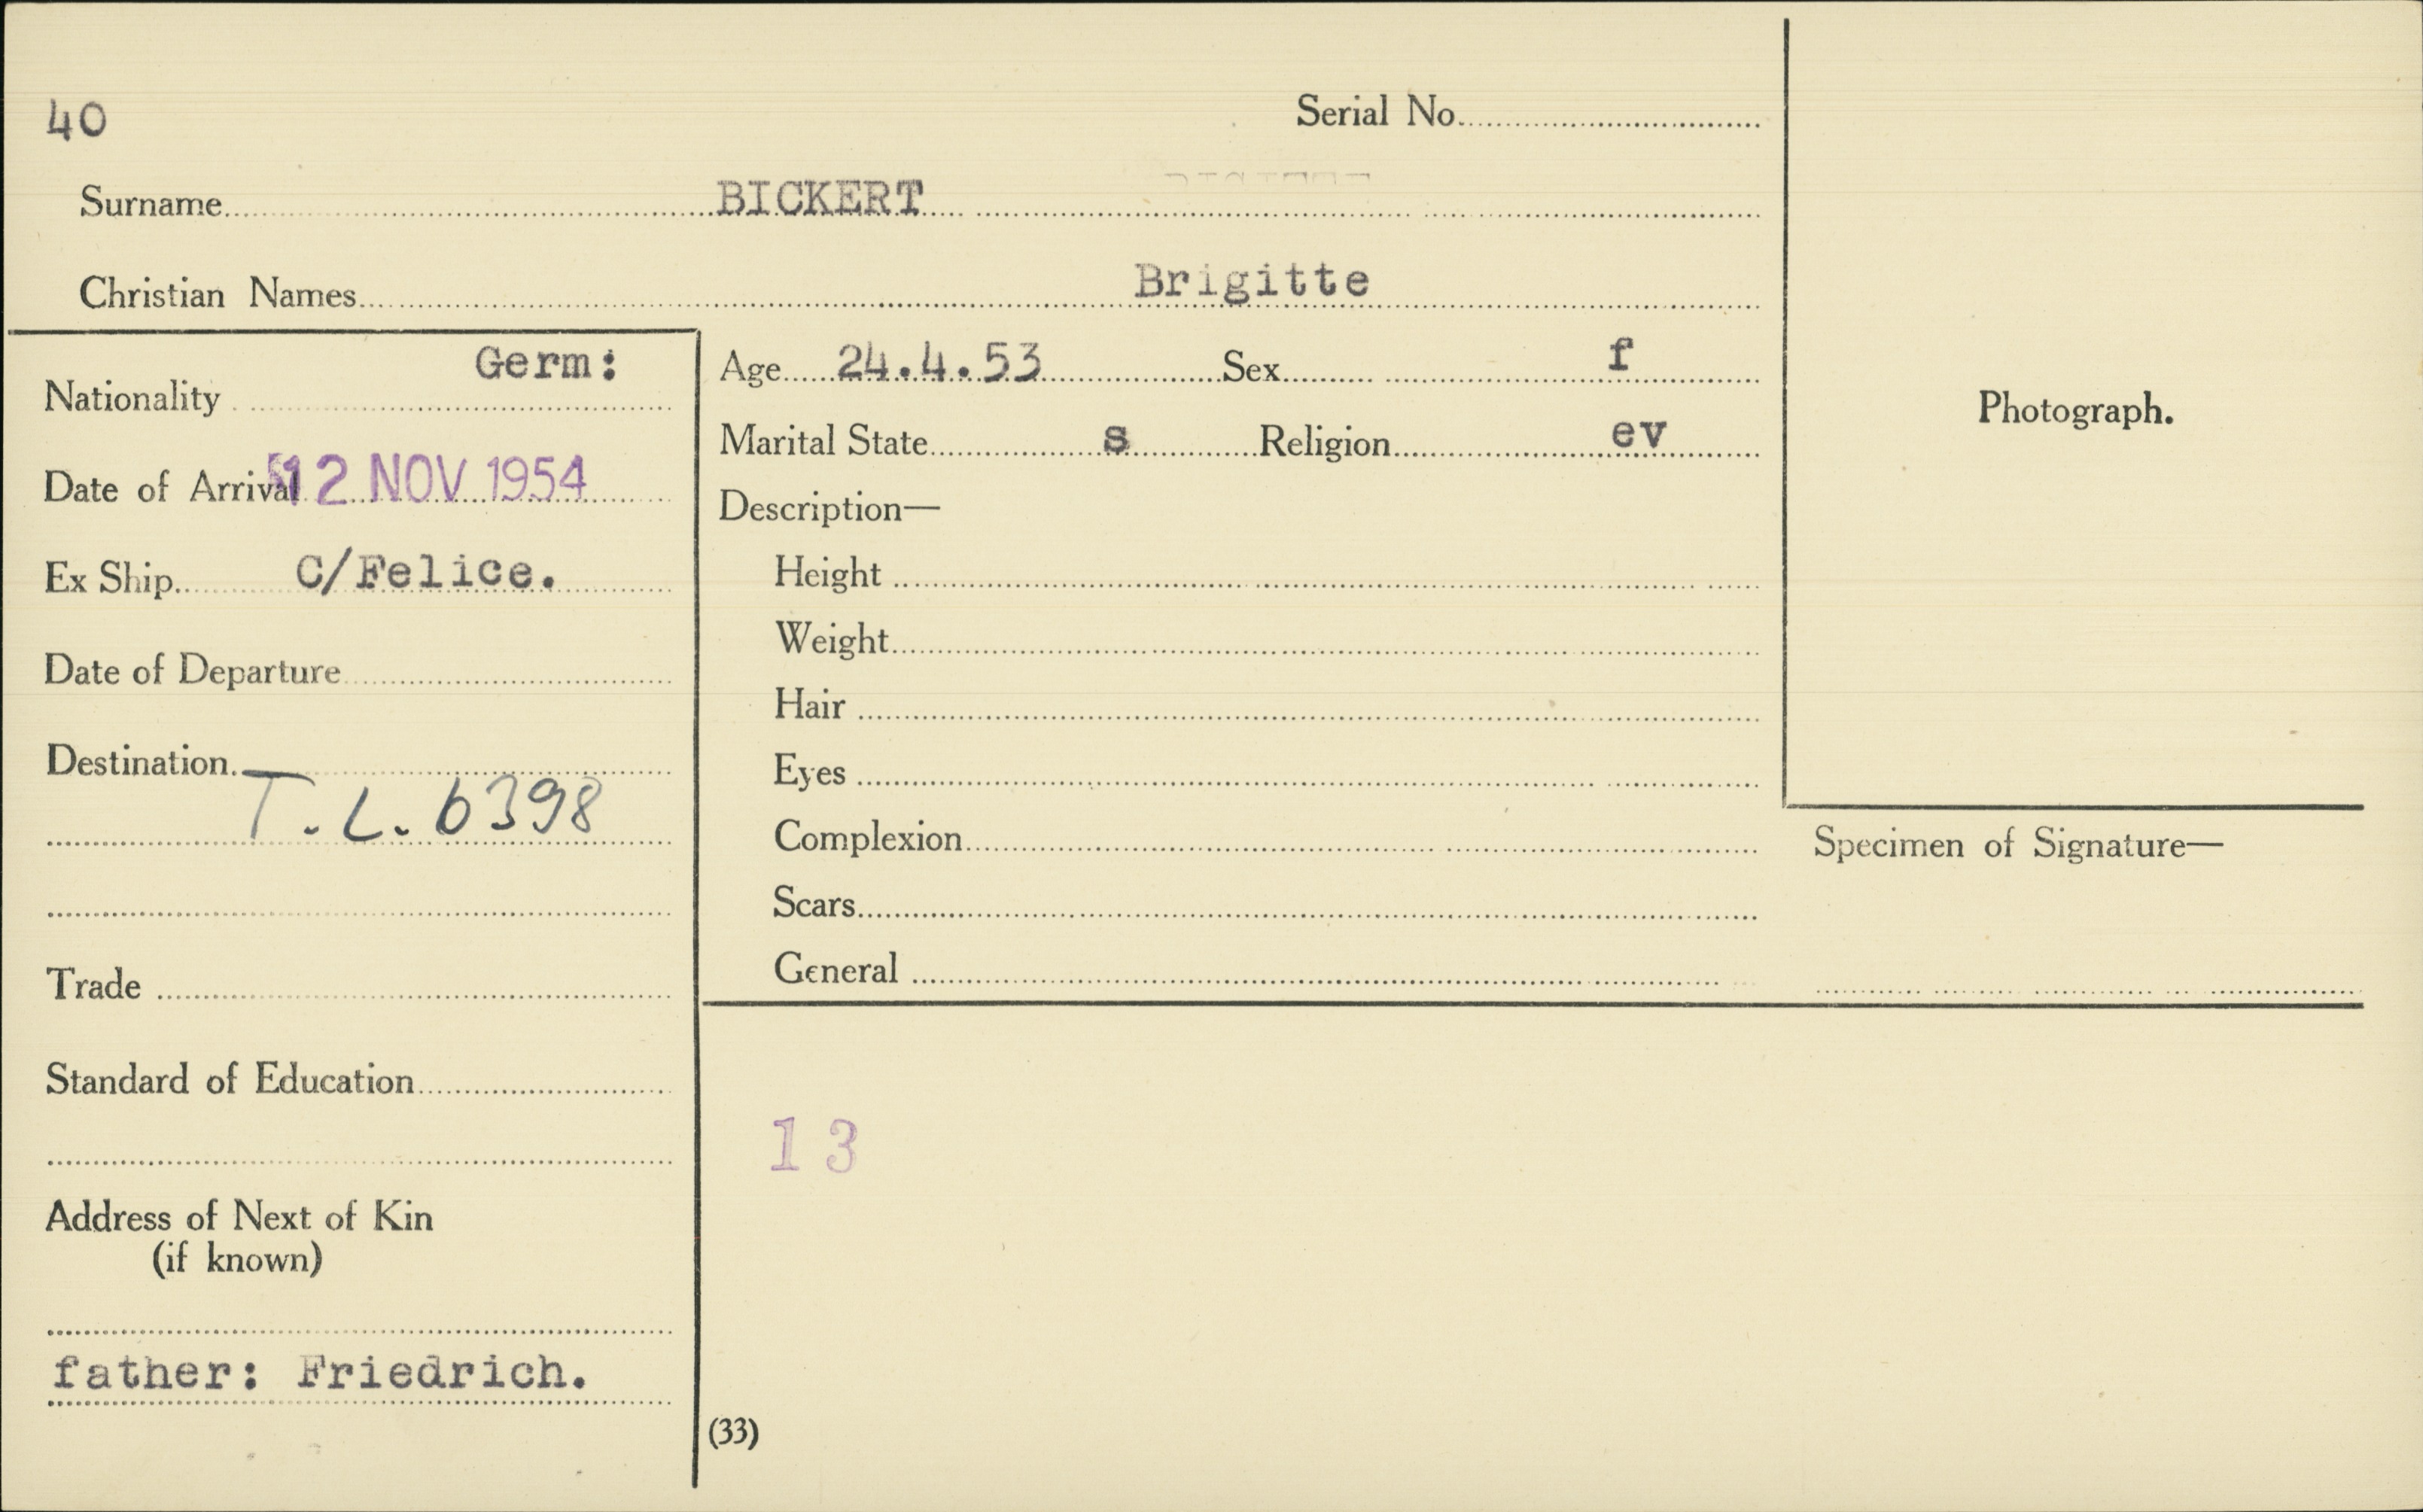 40
Serial No.
Surname BICKERT
Christian Names Brigitte
Nationality Germ:
Date of Arrival 12 NOV 1954
Ex Ship C/Felice.
Date of Departure
Destination.
T.L. 6398
Trade
Standard of Education
Address of Next of Kin
(if known)
father: Friedrich.
Age 24.4.53 Sex f
Marital State s Religion ev
Description—
Height
Weight
Hair
Eyes
Complexion
Scars
General
13
(33)
Photograph.
Specimen of Signature—